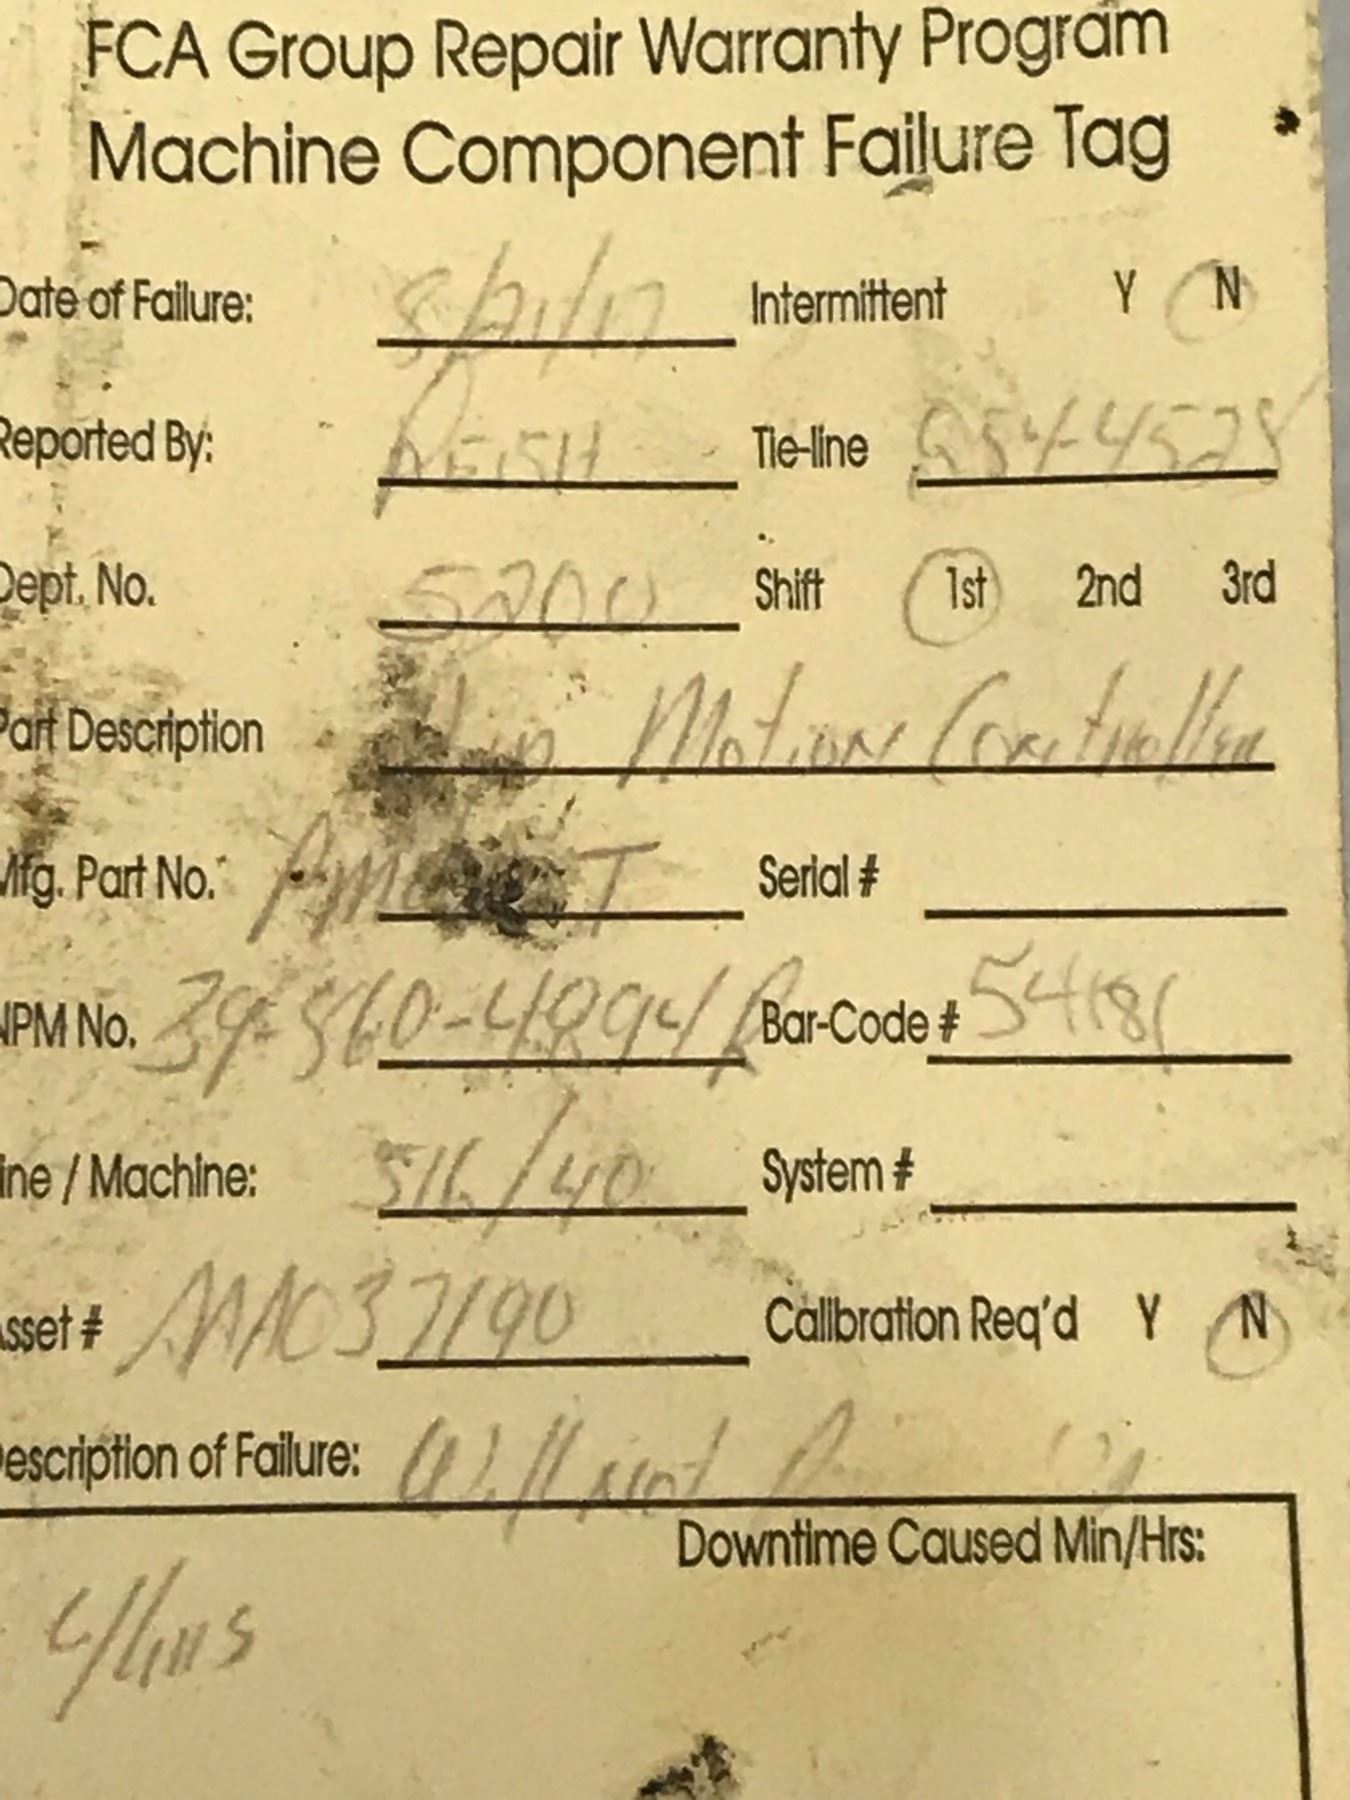 FCA Group Repair Warranty Program
Machine Component Failure Tag
Date of Failure: 8/21/17 Intermittent Y N
Reported By: Tie-line 454-4528
Dept. No. 5200 Shift 1st 2nd 3rd
Part Description Motion Controller
Mfg. Part No. Serial #
NPM No. 39-860-4894R Bar-Code # 54181
ine / Machine: 516/40 System #
Asset # AAA037190 Calibration Req'd Y N
escription of Failure: Will not
Downtime Caused Min/Hrs: